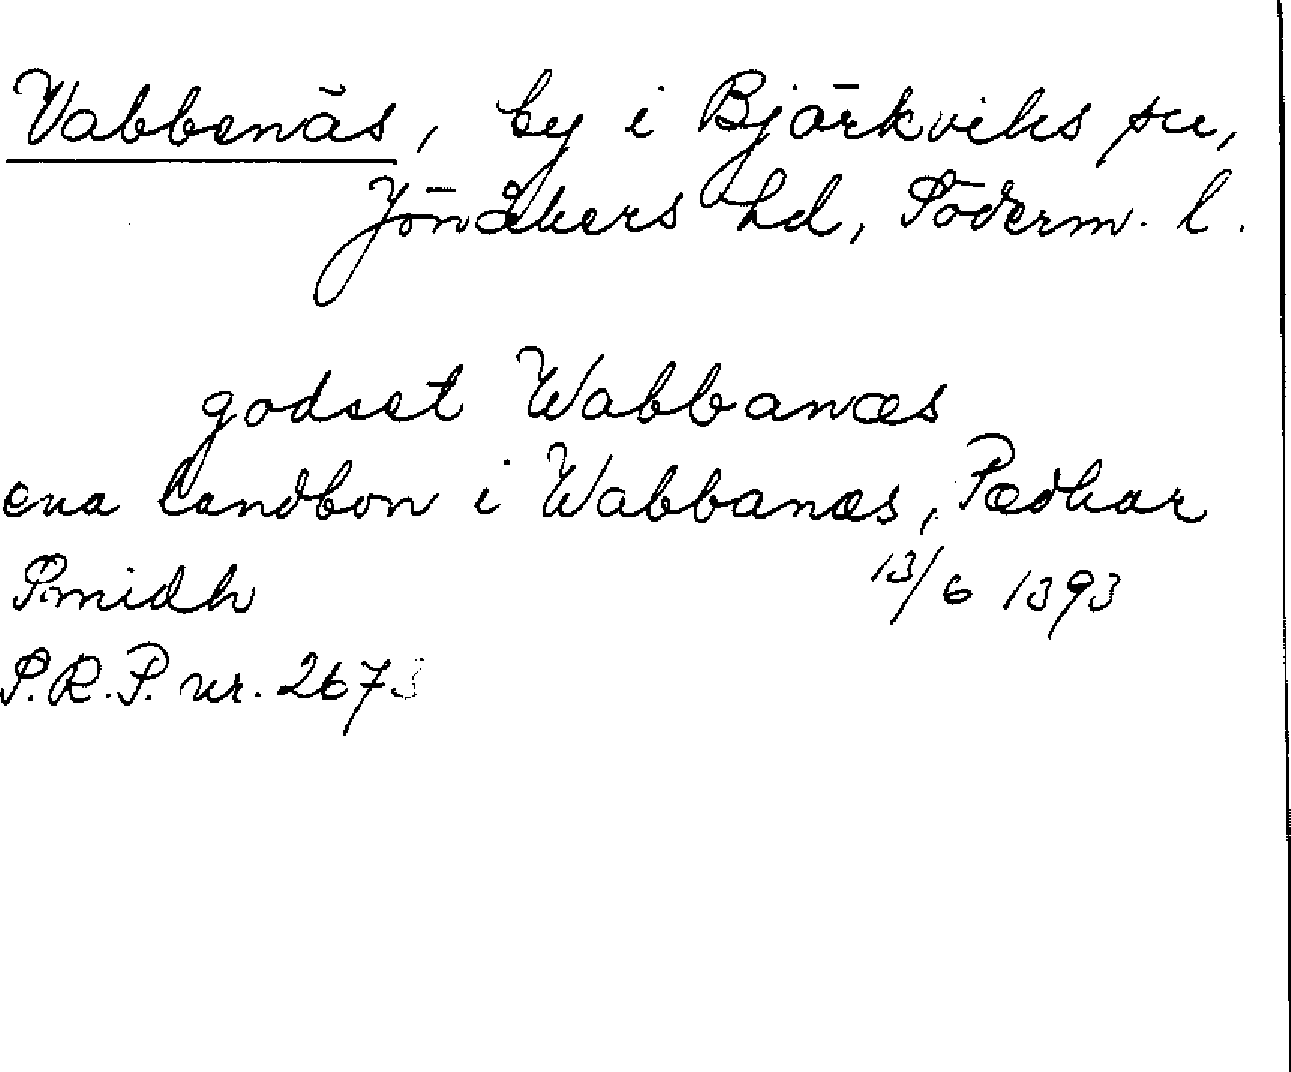 Vabbenäs, by i Björkviks sn,
Jönåkers hd, Söderm. l.
godset Wabbanæs
ena landbon i Wabbanæs, Pædhar
Smidh 13/6 1393
S.R.P. nr. 2673